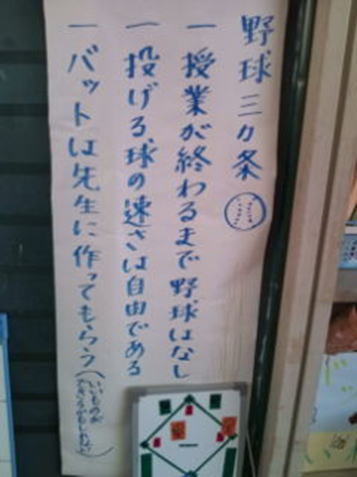 野球三カ条
一 授業が終わるまで野球はなし
一 投げる球の速さは自由である
一 バットは先生に作ってもらう(いいものが